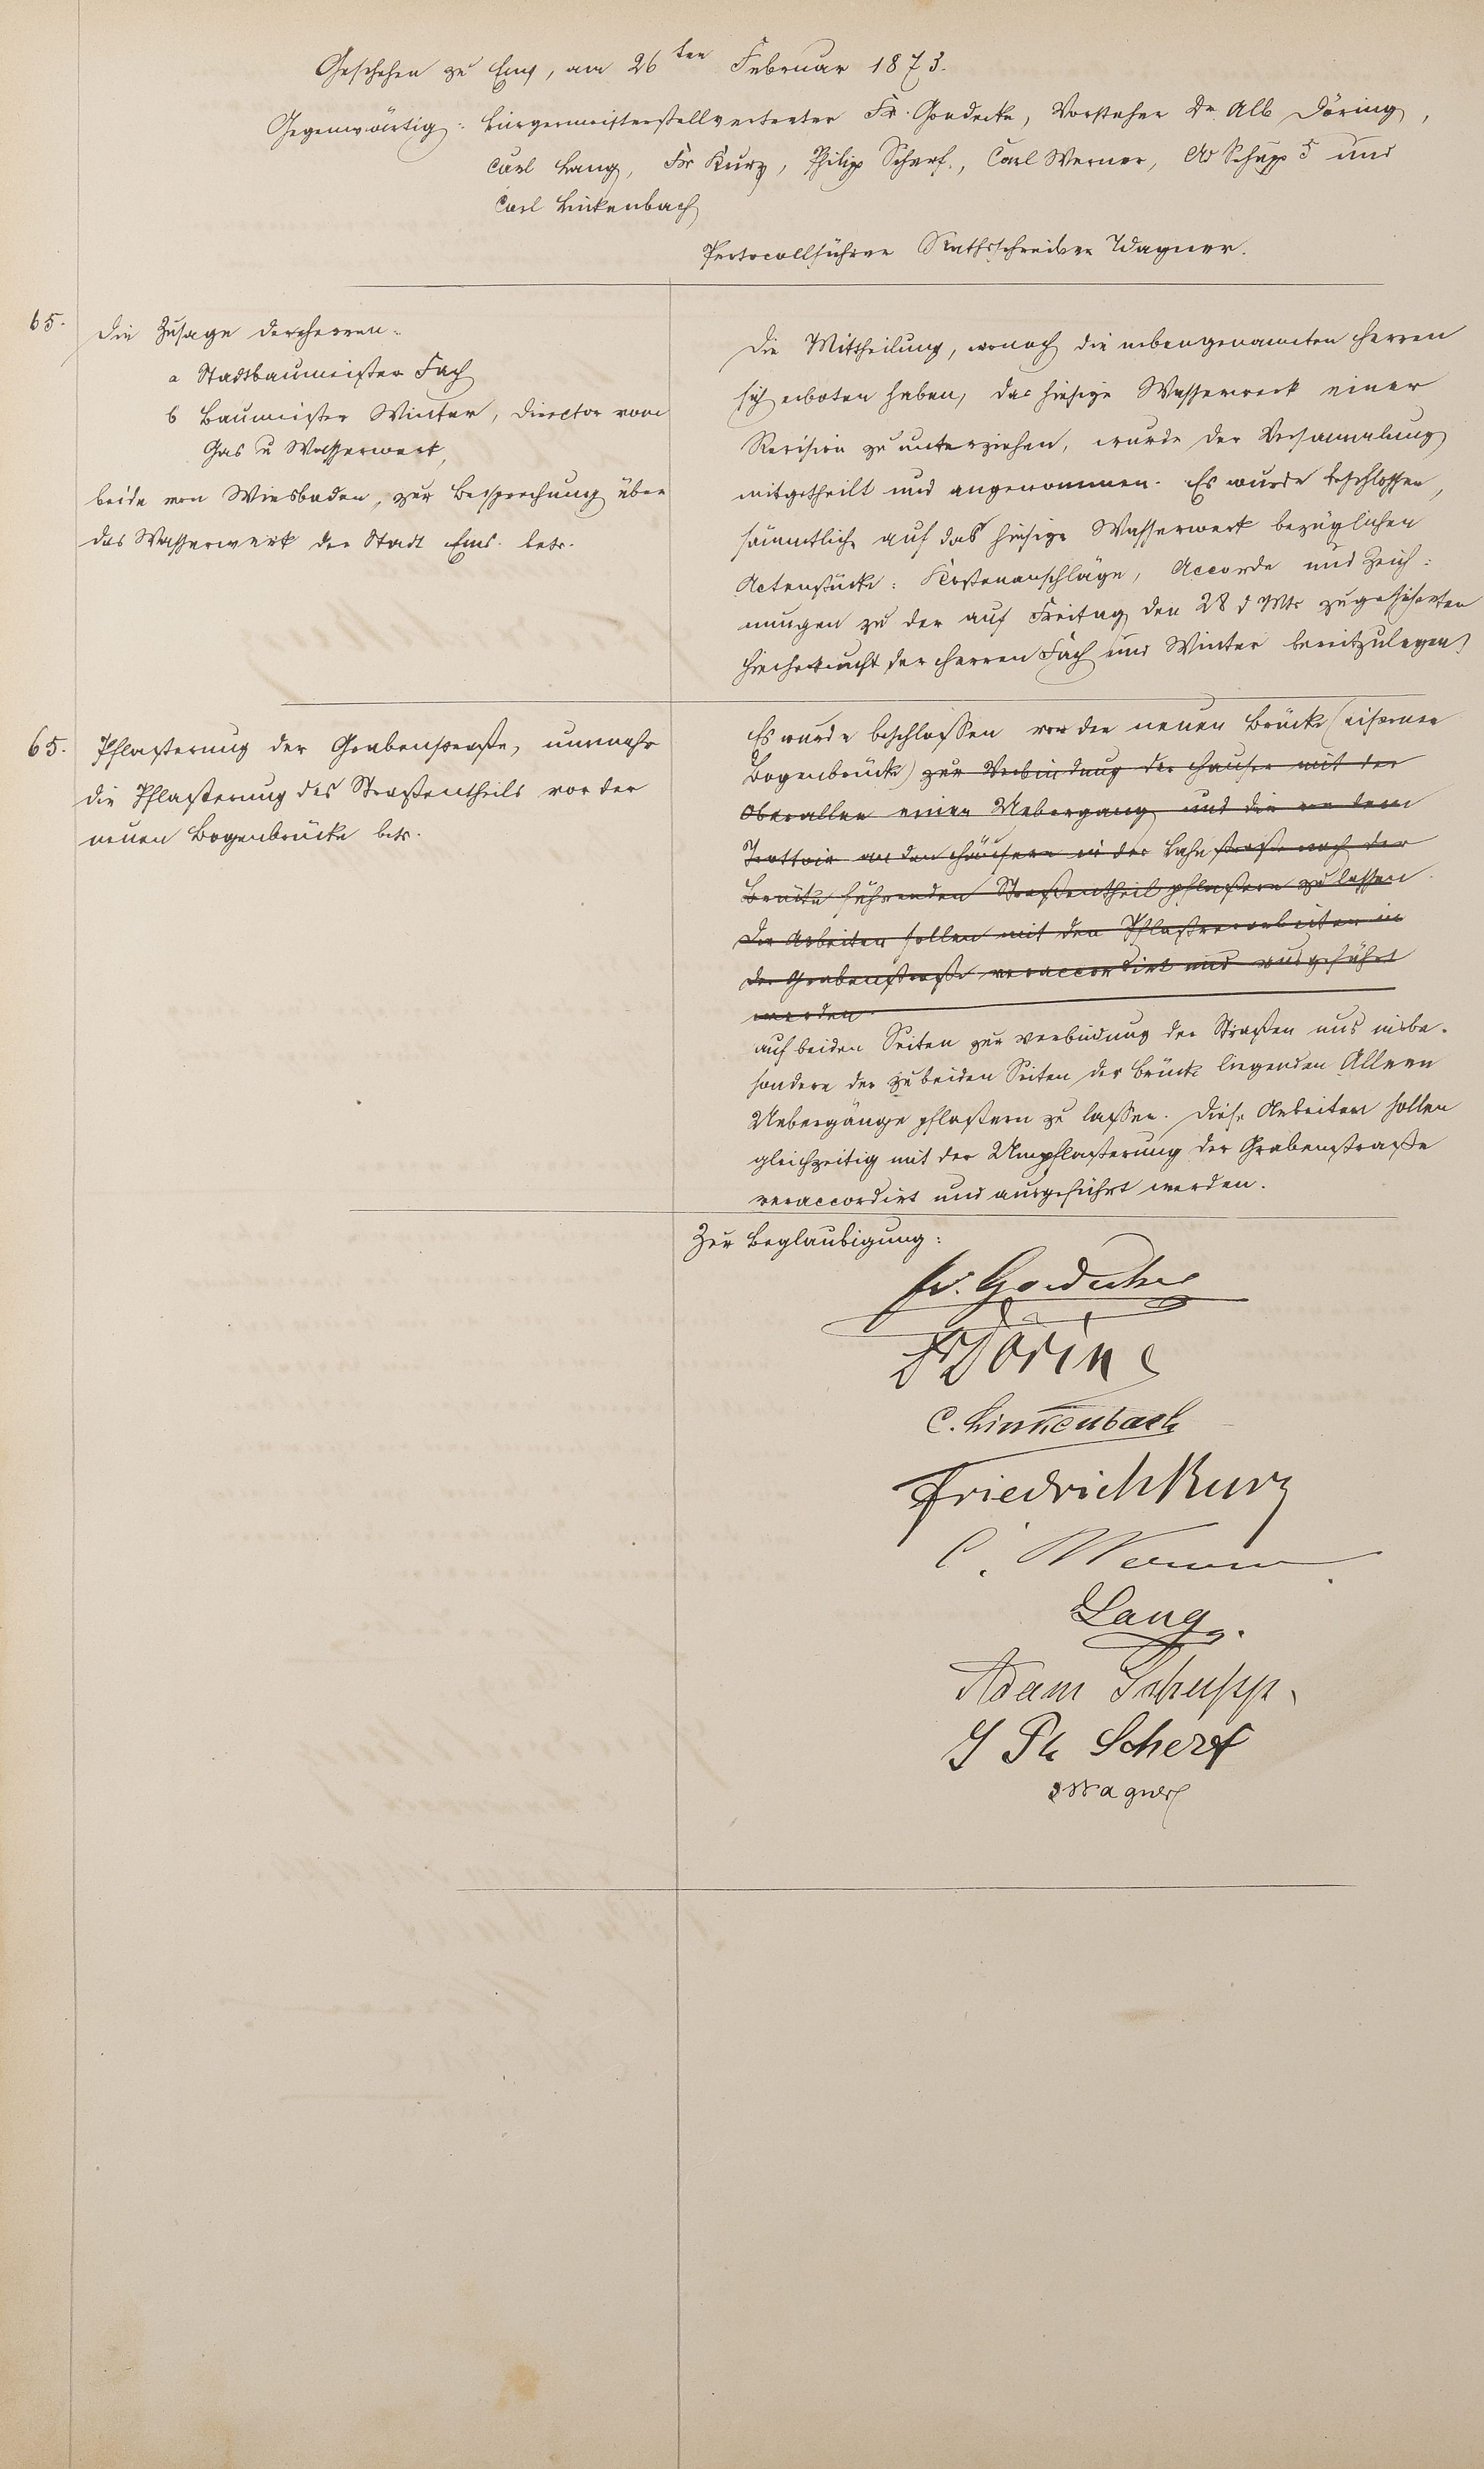 Geschehen zu Ems, am 26ten Februar 1873.
Gegenwärtig: Bürgermeisterstellvertreter Fr. Goedecke, Vorsteher Dr Alb Döring,
Carl Lang, Fr Kurz, Philip Scherf, Carl Werner, Ad Schupp 5 und
Carl Linkenbach
Protocollführer Rathsschreiber Wagner.
65.
Die Zusage der Herren:
a Stadtbaumeister Fach
b Baumeister Winter, Director vom
Gas u Wasserwerk,
beide von Wiesbaden, zur Besprechung über
das Wasserwerk der Stadt Ems betr.
Die Mittheilung, wonach die nebengenannten Herren
sich erboten haben, das hiesige Wasserwerk einer
Revision zu unterziehen, wurde der Versammlung
mitgetheilt und angenommen. Es wurde beschlossen,
sämmtliche auf das hiesige Wasserwerk bezüglichen
Actenstücke: Kostenanschläge, Accorde und Zeich:
nungen zu der auf Freitag den 28 d Mts zugesicherten
Hierherkunft der Herren Fach und Winter bereitzulegen.
65.
Pflasterung der Grabenstraße, nunmehr
die Pflasterung des Straßentheils vor der
neuen Bogenbrücke betr.
Es wurde beschlossen vor der neuen Brücke (eiserner
Bogenbrücke) zur Verbindung der Häuser mit der
Oberallee einen Uebergang und die von dem
Trottoir an den Häusern in der Lahnstraße nach der
Brücke führenden Straßentheil pflastern zu lassen.
Die Arbeiten sollen mit den Pflasterarbeiten in
der Grabenstraße veraccordirt und ausgeführt
werden.
auf beiden Seiten zur Verbindung der Straßen und insbe-
sondere der zu beiden Seiten der Brücke liegenden Alleen
Uebergänge pflastern zu lassen. Diese Arbeiten sollen
gleichzeitig mit der Umpflasterung der Grabenstraße
veraccordirt und ausgeführt werden.
Zur Beglaubigung:
Fr. Goedecke
Dr Döring
C. Linkenbach
Friedrich Kurz
C. Werner
Lang.
Adam Schupp.
J Ph Scherf
Wagner